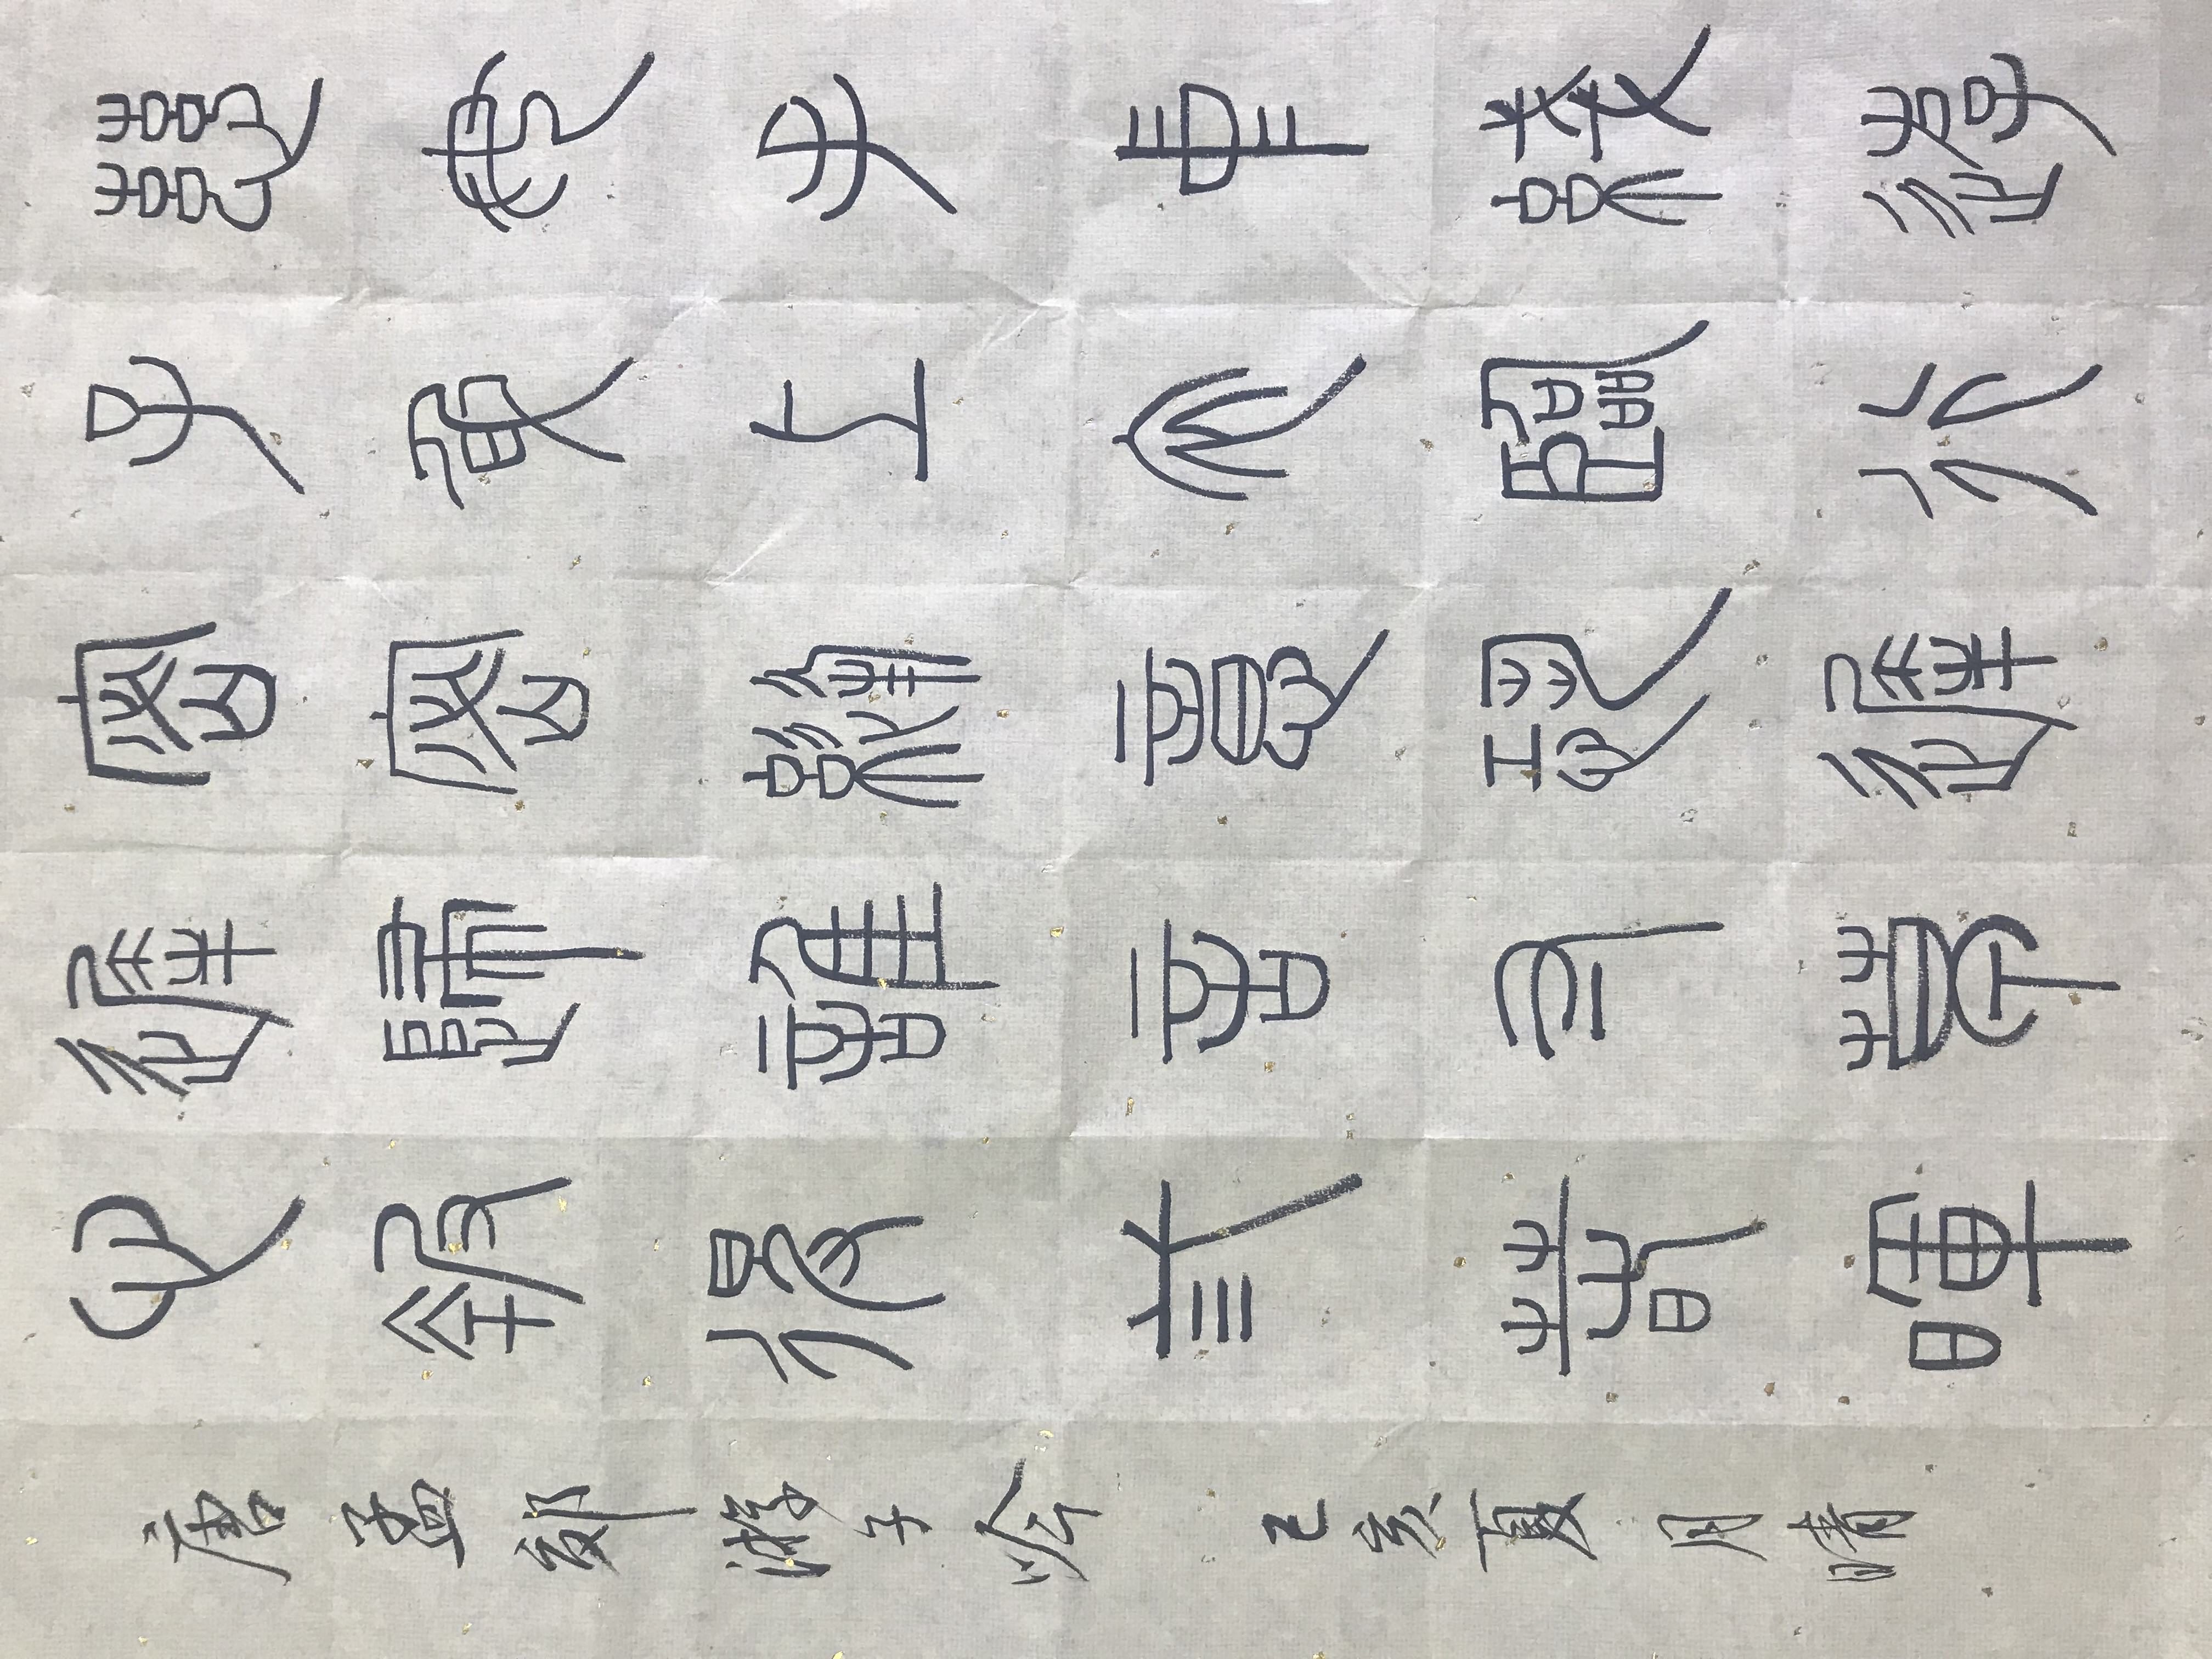 慈母手中綫遊
子身上衣臨行
密密縫意恐遲
遲歸誰言寸草
心報得弎春暉
唐孟郊游子吟 己亥夏月晴